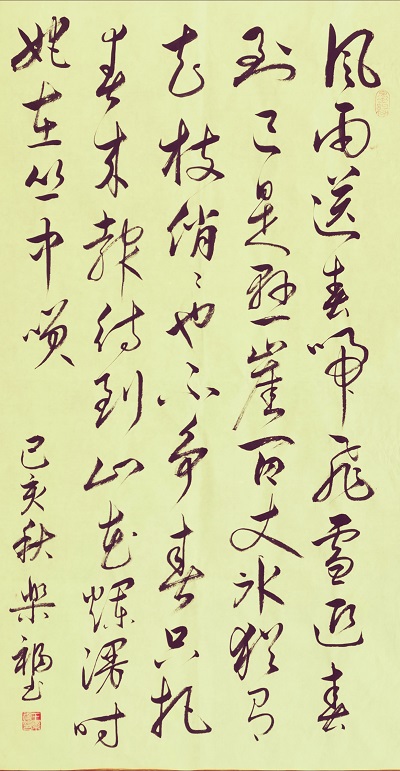 風雨送春歸飛雪迎春
到已是懸崖百丈冰猶有
花枝俏〻也不争春只把
春来報待到山花爛漫时
她在丛中咲
己亥秋樂福书